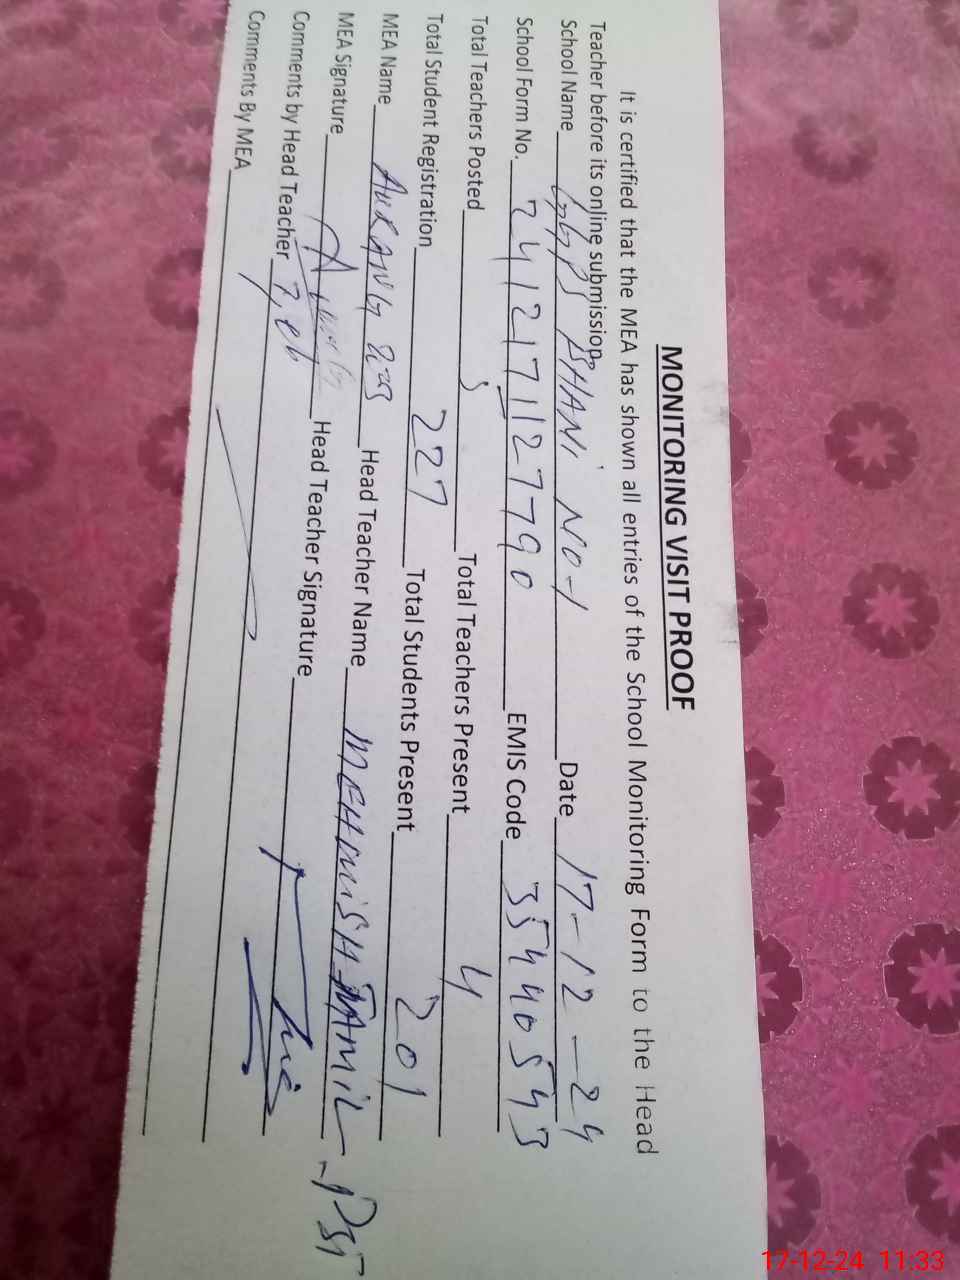 MONITORING VISIT PROOF
It is certified that the MEA has shown all entries of the School Monitoring Form to the Head
Teacher before its online submission.
School Name GGPS BHANI NO-1 Date 17-12-24
School Form No. 2412171127790 EMIS Code 35440543
Total Teachers Posted 5 Total Teachers Present 4
Total Student Registration 227 Total Students Present 201
MEA Name AURANG ZEB Head Teacher Name MEHMISH JAMIL - PST
MEA Signature Head Teacher Signature
Comments by Head Teacher
Comments By MEA
17-12-24 11:33